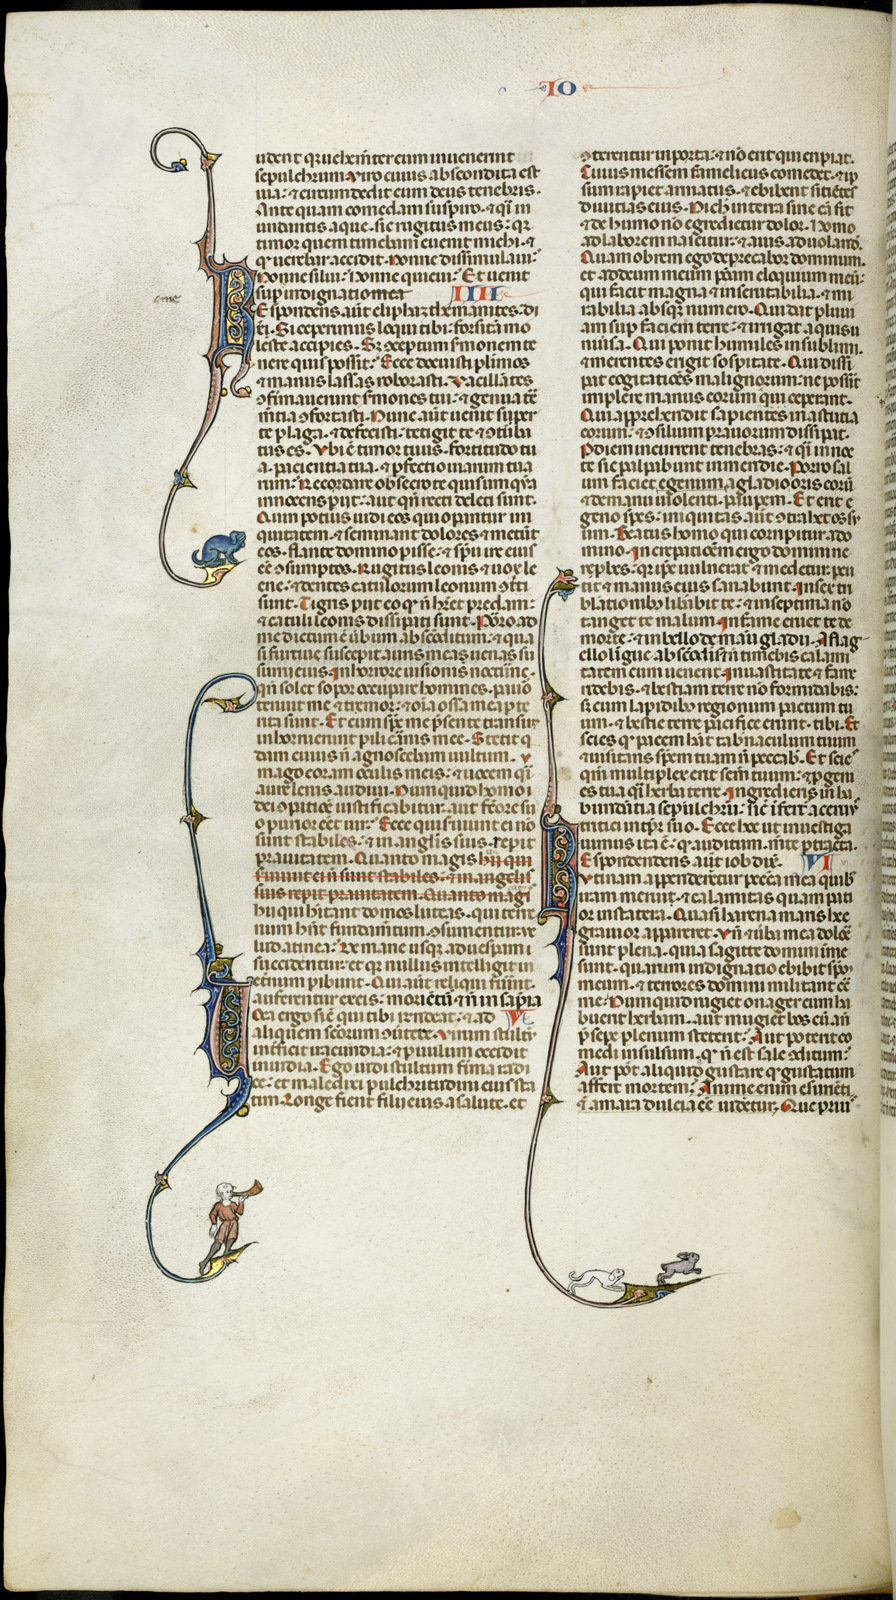 IO
udent q̄ uehem̄ter cum inuenerint
sepulchrum. Viro cuius abscondita est
uia: ⁊ circumdedit eum deus tenebris.
Ante quam comedam suspiro. ⁊ qͣi in
undantis aque. sic rugitus meus: qꝛ
timor quem timebam euenit michi. ⁊
qͩ uerebar accidit. Nonne dissimulaui:
Nonne silui: Nonne quieui: Et uenit
sup indignatio mea IIII
Espondens. aūt eliphaz themanites. di
xit. Si ceperimus loqui tibi: forsitā mo
leste accipies. Sꝫ ꝯceptum sermonem te
nere quis possit: Ecce docuisti plīmos
⁊ manus lassas roborasti. Vacillātes
ꝯfirmauerunt sermones tui: ⁊ genua tre
mētia ꝯfortasti. Nunc aūt uenit super
te plaga. ⁊ defecisti: tetigit te ⁊ ꝯturba
tus es. Vbi ē timor tuus. fortitudo tu
a. pacientia tua. ⁊ ꝑfectio uiarum tua
rum: Recordare obsecro te quis umqͣ
innocens piit: aut qn̄ recti deleti sunt.
Quin potius uidi eos qui oꝑantur ini
quitatem. ⁊ seminant dolores ⁊ metūt
eos. flante domino pisse: ⁊ spū ire eius
eē ꝯsumptos. Rugitus leonis ⁊ uox le
ene: ⁊ dentes catulorum leonum ꝯtriti
sunt. Tigris piit eo qͩ n̄ hret predam:
⁊ catuli leonis dissipati sunt. Porro ad
me dictum ē ūbum absconditum: ⁊ qua
si furtiue suscepit auris mea uenas su
surri eius. In horrore uisionis nocturne.
qn̄ solet sopor occupare homines. pauor
tenuit me ⁊ tremor: ⁊ oīa ossa mea ꝑte
rita sunt. Et cum spc̄ me p̄sente transir
inhorruerunt pili carnis mee. Stetit q
dam cuius n̄ agnoscebam uultum. y
mago coram oculis meis: ⁊ uocem qͣi
aure lenis audiui. Numquid homo i
dei ꝯpatione iustificabitur. aut factore su
o purior erit uir: Ecce qui seruiunt ei nō
sunt stabiles: ⁊ in angelis suis. repit
prauitatem. Quanto magis hii qui
seruiunt ei n̄ sunt stabiles: ⁊ in angelis
suis repit prauitatem. Quanto magi
hii qui hītant domos luteas. qui terre
num hn̄t fundam̄tum. ꝯsumentur ue
lud a tinea: De mane usqꝫ ad uesperam
succidentur: et qꝛ nullus intelligit in
eternum pibunt. Qui aūt reliqui fuerint.
auferentur ex eis: morientur ⁊ n̄ in sapia
Oca ergo si ē qui tibi respondeat: ⁊ ad V
aliquem scorum ꝯuertere. Virum stultum
interficit iracundia: ⁊ paruulum occidit
inuidia. Ego uidi stultum firma radi
ce: et maledixi pulchritudini eius sta
tim. Longe fient filii eius a salute. et
ꝯterentur in porta: ⁊ nō erit qui eripiat.
Cuius messem famelicus comedet. ⁊ ip
sum rapiet armatus. ⁊ ebibent sitientes
diuitias eius. Nichil in terra sine cā fit
⁊ de humo nō egredietur dolor. Homo
ad laborem nascitur: ⁊ auis ad uolatū.
Quam obrem ego deprecabor dominum.
et ad deum meum ponam eloquium meū:
qui facit magna ⁊ inscrutabilia. ⁊ mi
rabilia absqꝫ numero. Qui dat pluui
am sup faciem terre: ⁊ irrigat aquis u
niūsa. Qui ponit humiles in sublimi.
⁊ merentes erigit sospitate. Qui dissi
pat cogitationes malignorum: ne possint
implere manus eorum qui ceperant.
Qui apprehendit sapientes in astutia
eorum: ⁊ ꝯsilium prauorum dissipat.
Per diem incurrent tenebras: ⁊ qͣi in noc
te sic palpabunt in meridie. Porro sal
uum faciet egenum a gladio oris eorū
⁊ de manu uiolenti. pauꝑem. Et erit e
geno spes: iniquitas aūt ꝯtrahet os su
um. Beatus homo qui corripitur a do
mino. Increpationem ergo domini ne
reprobes: qꝛ ipse uulnerat ⁊ medetur. percu
tit ⁊ manus eius sanabunt. In sex tri
blationibꝫ liberabit te: ⁊ in septima nō
tanget te malum. In fame eruet te de
morte: ⁊ in bello de manu gladii. A flag
ello lingue absconderis: ⁊ n̄ timebis calami
tatem cum uenerit. In uastitate ⁊ fame
ridebis. ⁊ bestiam terre nō formidabis:
sꝫ cum lapidibꝫ regionum pactum tu
um. ⁊ bestie terre pacifice erunt. tibi. Et
scies qͩ pacem habeat tabernaculum tuum
⁊ uisitans spem tuam n̄ peccab. Et scies
qm̄ multiplex erit semen tuum: ⁊ ꝓgeni
es tua qͣi herba terre. Ingredieris in ha
bundantia sepulchrū: sicut infertur aceruus
tritici in tempr̄ suo. Ecce hec ut inuestiga
uimus ita ē: qͩ auditum. mente ꝑtracta.
Espondendens aūt iob dix̄. VI
Vtinam appenderentur peccata mea quibꝫ
iram merui: ⁊ calamitas quam pati
or in statera. Quasi harena maris hec
grauior appareret. Vn̄ ⁊ ūba mea dolore
sunt plena. quia sagitte domini in me
sunt. quarum indignatio ebibit spm̄
meum. ⁊ terrores domini militant cont̄
me: Numquid rugiet onager cum ha
buerit herbam. aut mugiet bos cū an̄
p̄sepe plenum steterit: Aut poterit co
medi insulsum. qͩ n̄ est sale ꝯditum:
Aut pōt aliquis gustare qͩ gustatum
affert mortem: Anime enim esurienti
⁊ amara dulcia eē uidentur. Que prius